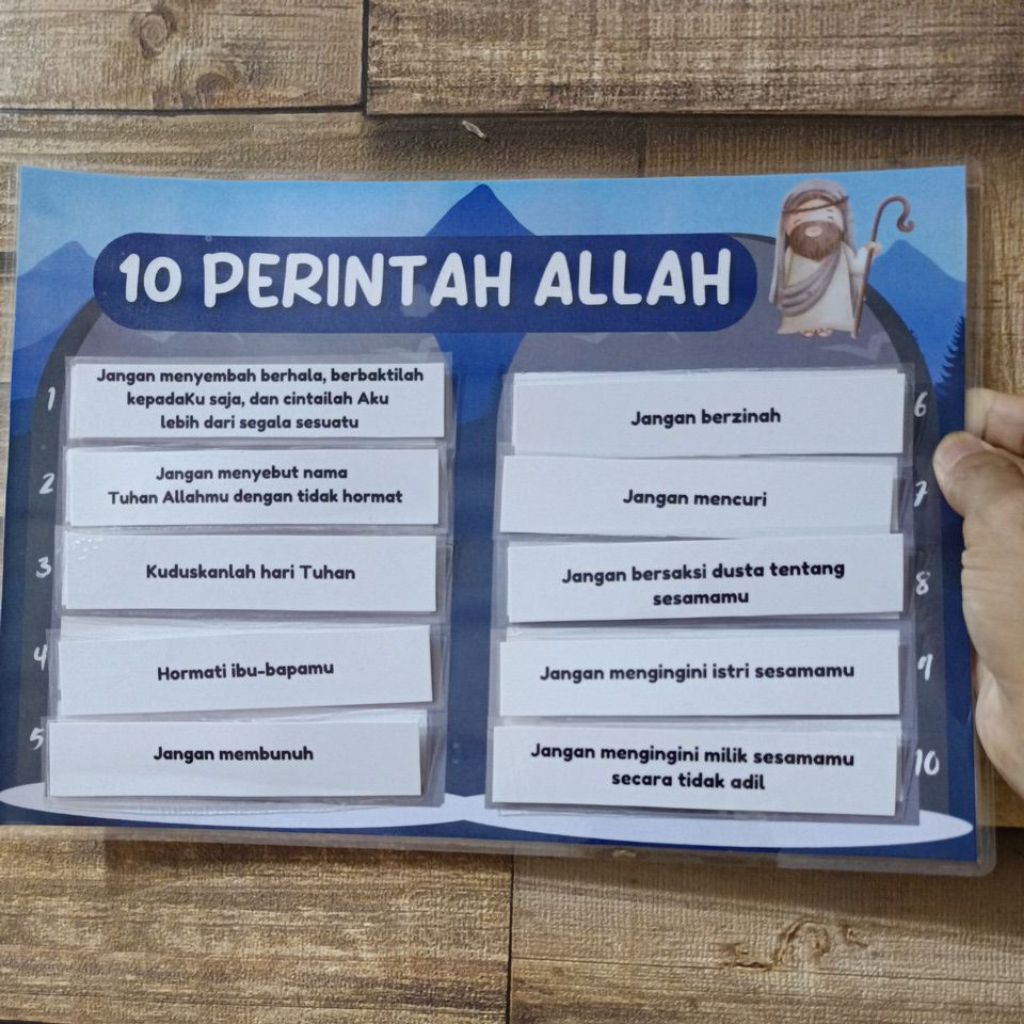 10 PERINTAH ALLAH
1
Jangan menyembah berhala, berbaktilah
kepadaKu saja, dan cintailah Aku
lebih dari segala sesuatu
2
Jangan menyebut nama
Tuhan Allahmu dengan tidak hormat
3
Kuduskanlah hari Tuhan
4
Hormati ibu-bapamu
5
Jangan membunuh
Jangan berzinah
6
Jangan mencuri
7
Jangan bersaksi dusta tentang
sesamamu
8
Jangan mengingini istri sesamamu
9
Jangan mengingini milik sesamamu
secara tidak adil
10